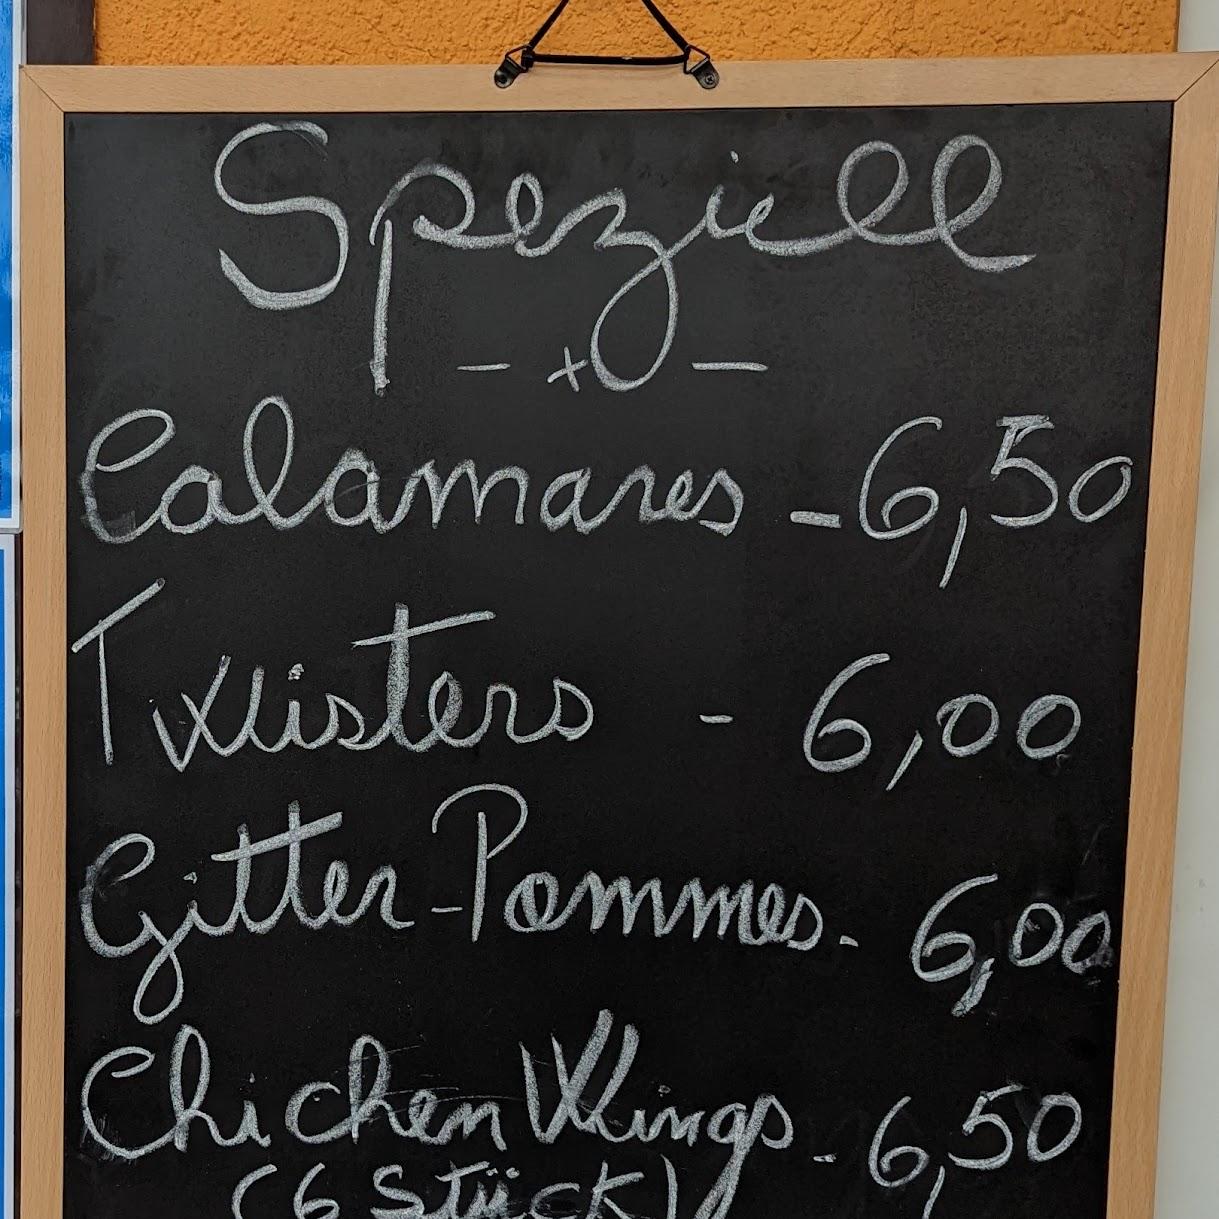 Speziell
Calamares - 6,50
Twisters - 6,00
Gitter-Pommes - 6,00
Chicken Wings - 6,50
(6 Stück)